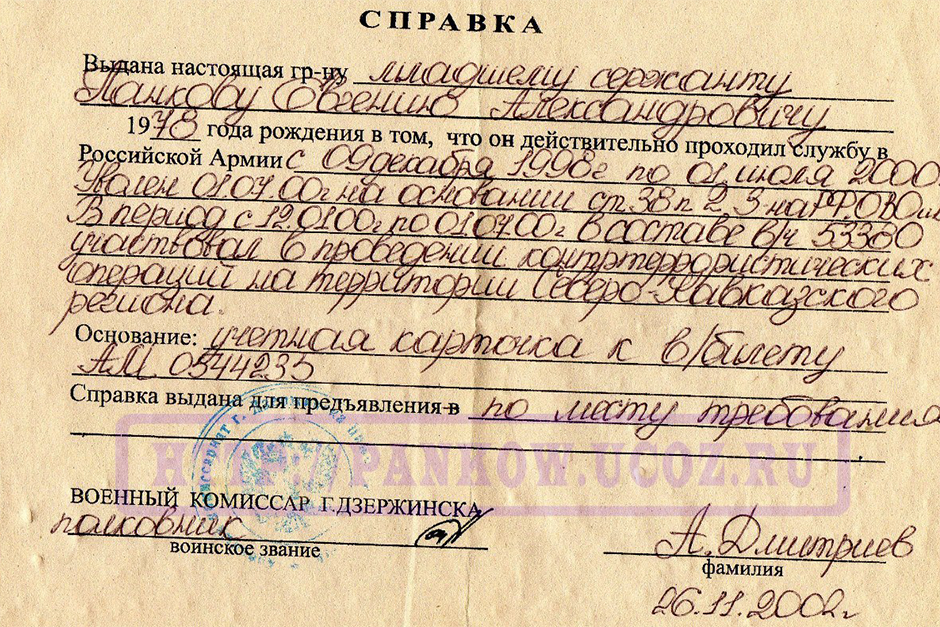 СПРАВКА
Выдана настоящая гр-ну младшему сержанту
Панкову Евгению Александровичу
1978 года рождения в том, что он действительно проходил службу в
Российской Армии с 09 декабря 1998г по 01 июля 2000
Уволен 01.07.00г на основании ст.38 п 2,3
В период с 12.01.00г по 01.07.00г в составе в/ч 53380
участвовал в проведении контртеррористических
операций на территории Северо-Кавказского
региона.
Основание: учетная карточка к в/билету
АМ 0544235
Справка выдана для предъявления в по месту требования
HTTP://PANKOW.UCOZ.RU
ВОЕННЫЙ КОМИССАР Г.ДЗЕРЖИНСКА
полковник
воинское звание
А.Дмитриев
фамилия
26.11.2002г